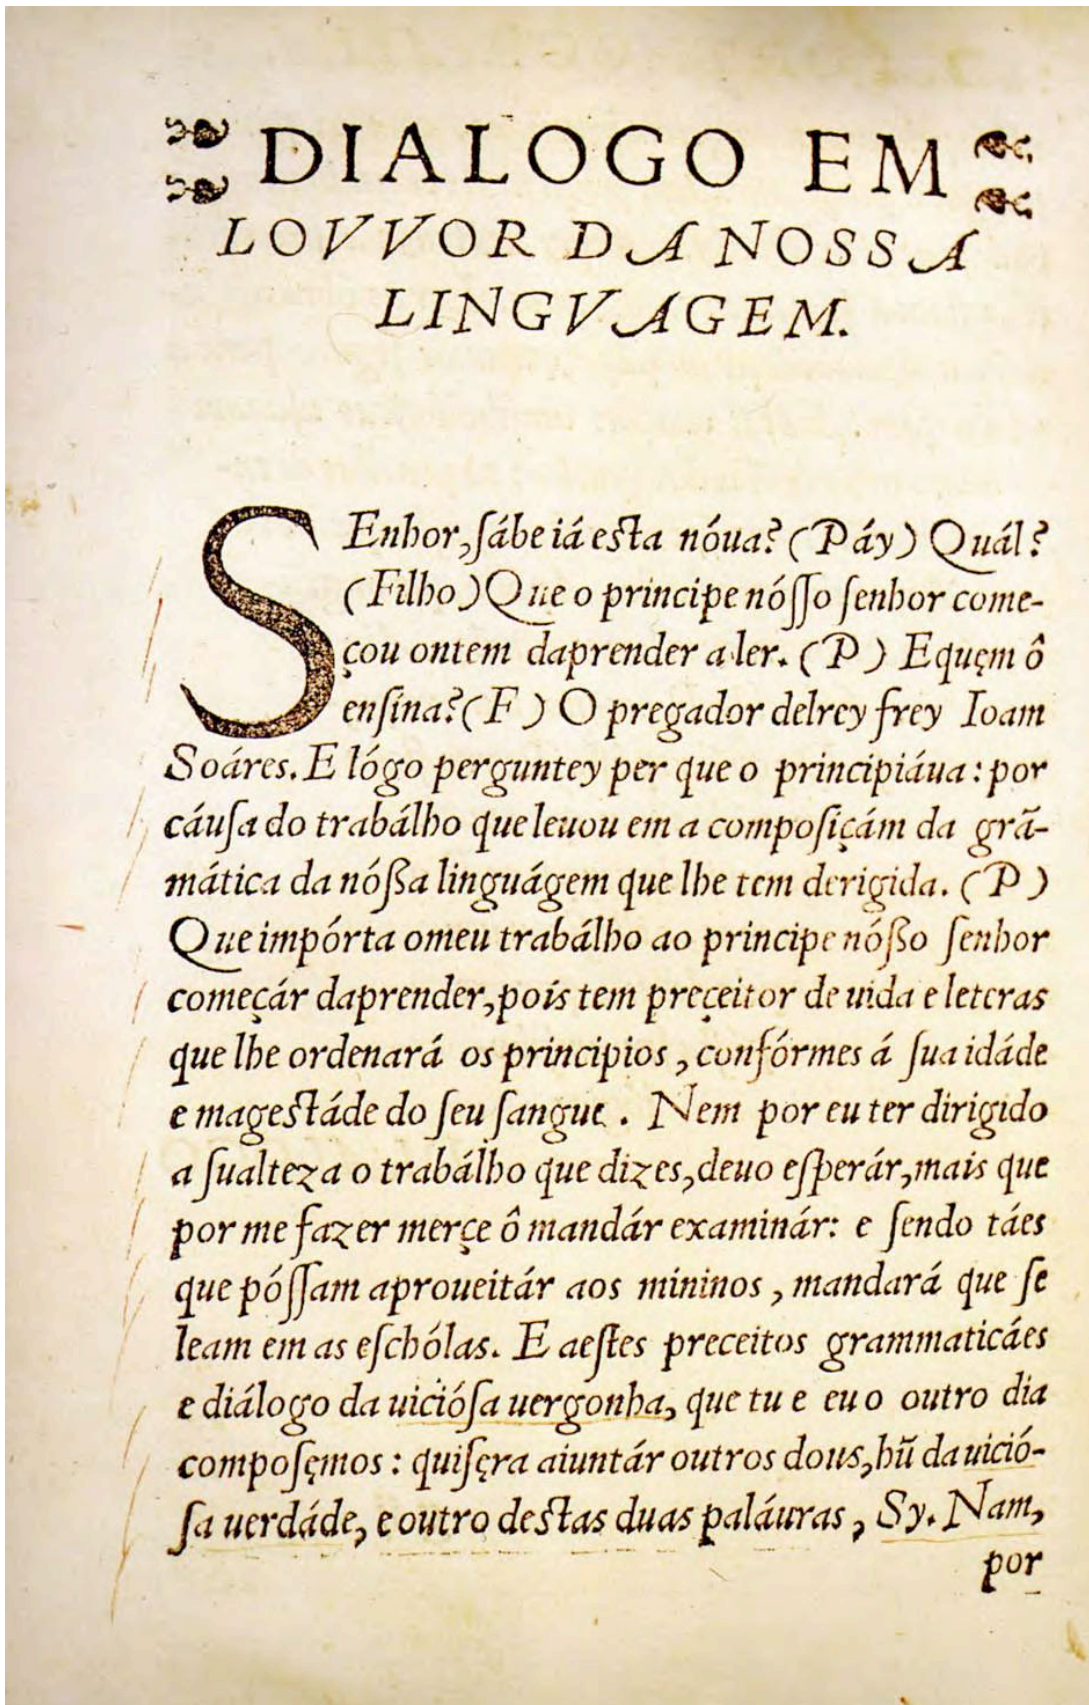 DIALOGO EM
LOVVOR DA NOSSA
LINGVAGEM.
SEnhor, ſábe iá eſta nóua? (Páy) Quál?
(Filho) Que o principe nóſſo ſenhor come-
çou ontem daprender a ler. (P) E quęm ô
enſina? (F) O pregador delrey frey Ioam
Soáres. E lógo perguntey per que o principiáua: por
cáuſa do trabálho que leuou em a compoſiçám da grã-
mática da nóßa linguágem que lhe tem derigida. (P)
Que impórta o meu trabálho ao principe nóßo ſenhor
começár daprender, pois tem preçeitor de uida e leteras
que lhe ordenará os principios, confórmes á ſua idáde
e mageſtáde do ſeu ſangue. Nem por eu ter dirigido
a ſualteza o trabálho que dizes, deuo eſperár, mais que
por me fazer merçe ô mandár examinár: e ſendo táes
que póſſam aproueitár aos mininos, mandará que ſe
leam em as eſchólas. E a eſtes preceitos grammaticáes
e diálogo da uicióſa uergonha, que tu e eu o outro dia
compoſęmos: quiſęra aiuntár outros dous, hũ da uició-
ſa uerdáde, e outro deſtas duas paláuras, Sy. Nam,
por